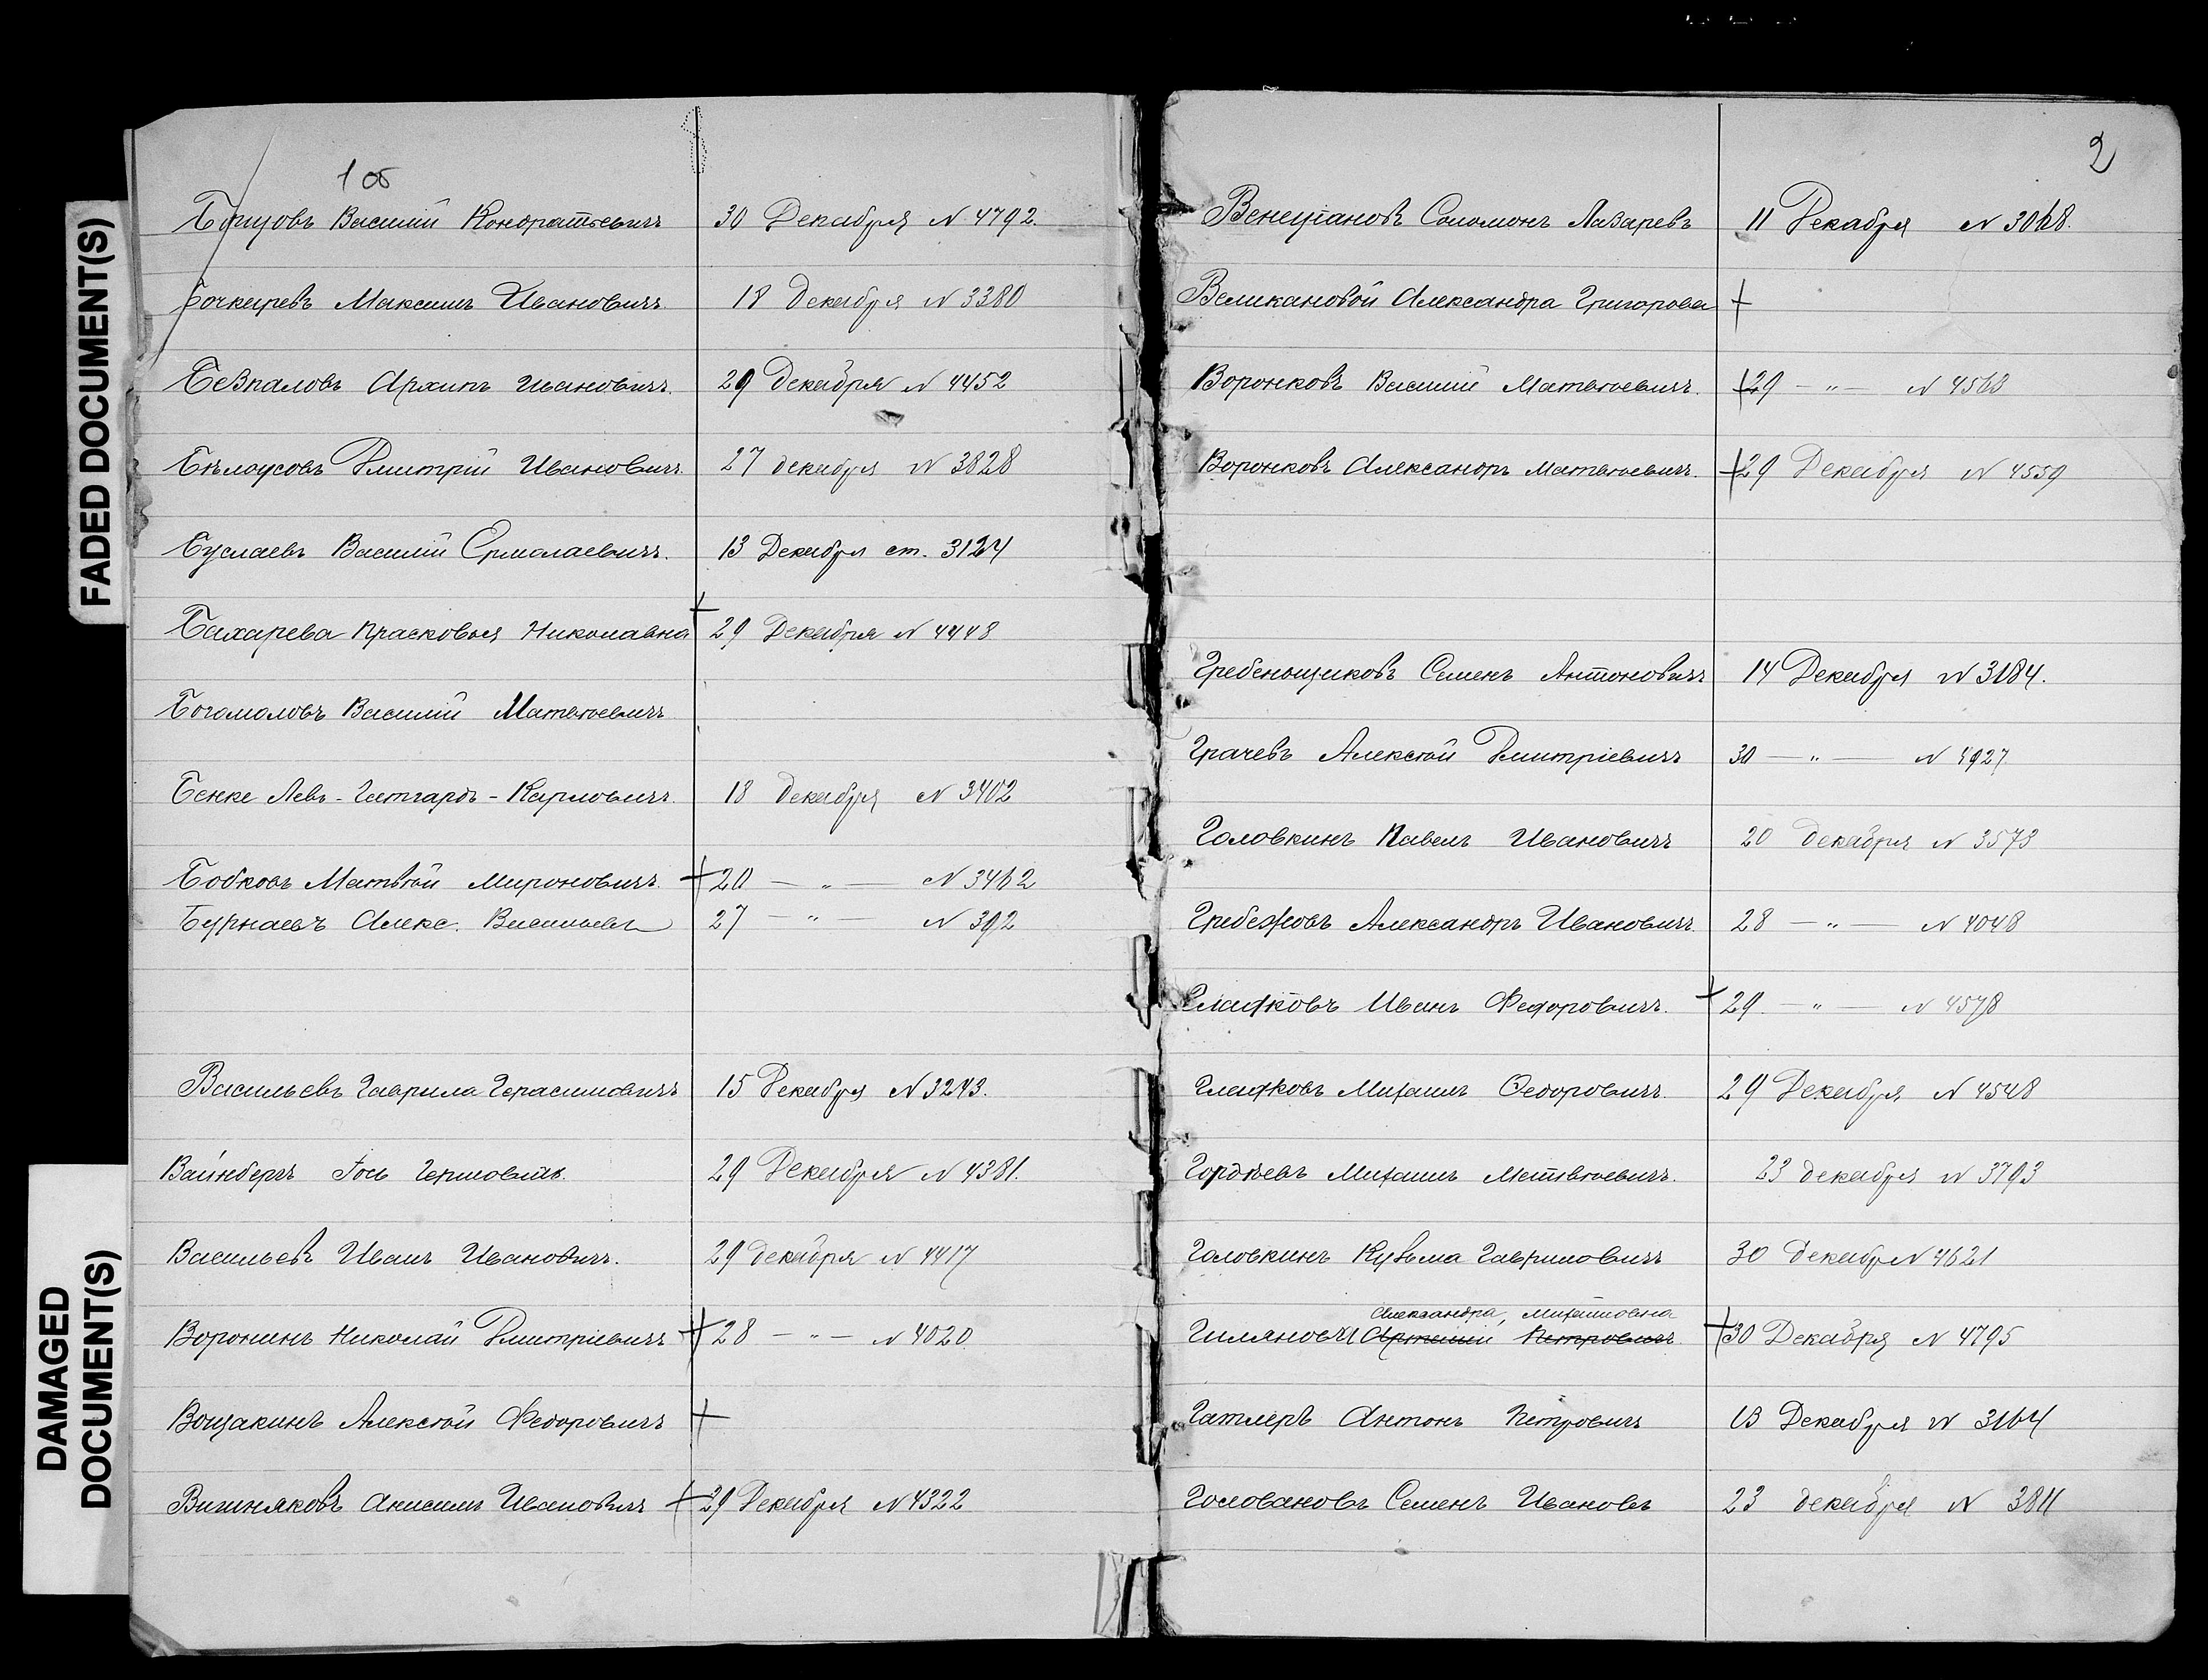 FADED DOCUMENT(S)
DAMAGED
DOCUMENT(S)
1 об
Борщовъ Василій Кондратьевичъ 30 Декабря N 4792.
Бочкаревъ Максимъ Ивановичъ 18 Декабря N 3380
Безпаловъ Архипъ Ивановичъ. 29 Декабря N 4452
Бѣлоусовъ Дмитрій Ивановичъ 27 декабря N 3828
Буслаевъ Василій Ермолаевичъ. 13 Декабря ст. 3124
Бахарева Прасковья Николавна + 29 Декабря N 4448
Богомоловъ Василій Матвѣевичъ
Бенке Левъ-Гетгардъ-Карловичъ. 18 декабря N 3402
Бобковъ Матвѣй Мироновичъ. + 20 — „ — N 3462
Бурнаевъ Алекс. Васильев 27 — „ — N 392
Васильевъ Гаврила Герасимовичъ 15 Декабря N 3243.
Вайнбергъ Гершовичъ. 29 Декабря N 4381.
Васильевъ Иванъ Ивановичъ. 29 декабря N 4417
Воронинъ Николай Дмитріевичъ + 28 — „ — N 4020
Вощакинъ Алексѣй Федоровичъ +
Вишняковъ Анисимъ Ивановичъ + 29 Декабря N 4322
2
Венециановъ Соломонъ Лазаревъ 11 Декабря N 3068.
Великановой Александра Григорова +
Воронковъ Василій Матвѣевичъ. + 29 — „ — N 4563
Воронковъ Александръ Матвѣевичъ. + 29 Декабря N 4559
Гребеньщиковъ Семенъ Антоновичъ 14 Декабря N 3184.
Грачевъ Алексѣй Дмитріевичъ 30 — „ — N 4927
Головкинъ Павелъ Ивановичъ 20 декабря N 3573
Гребежовъ Александръ Ивановичъ. 28 — „ — N 4048
Гладковъ Иванъ Федоровичъ. + 29 — „ — N 4578
Гладковъ Михаилъ Федоровичъ. 29 Декабря N 4548
Гордѣевъ Михаилъ Матвѣевичъ. 23 декабря N 3793
Головкинъ Кузьма Гавриловичъ 30 Декабр N 4621
Александра, Михайловна
Гиляновъ Артемій Петровичъ. + 30 Декабря N 4795
Гатлеръ Антонъ Петровичъ 13 Декабря N 3164
Головановъ Семенъ Ивановъ 23 декабря N 3811